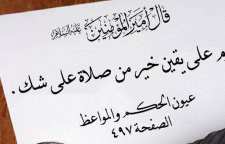 قال أمير المؤمنين عليه السلام
م على يقين خير من صلاة على شك .
عيون الحكم والمواعظ
الصفحة ٤٩٧